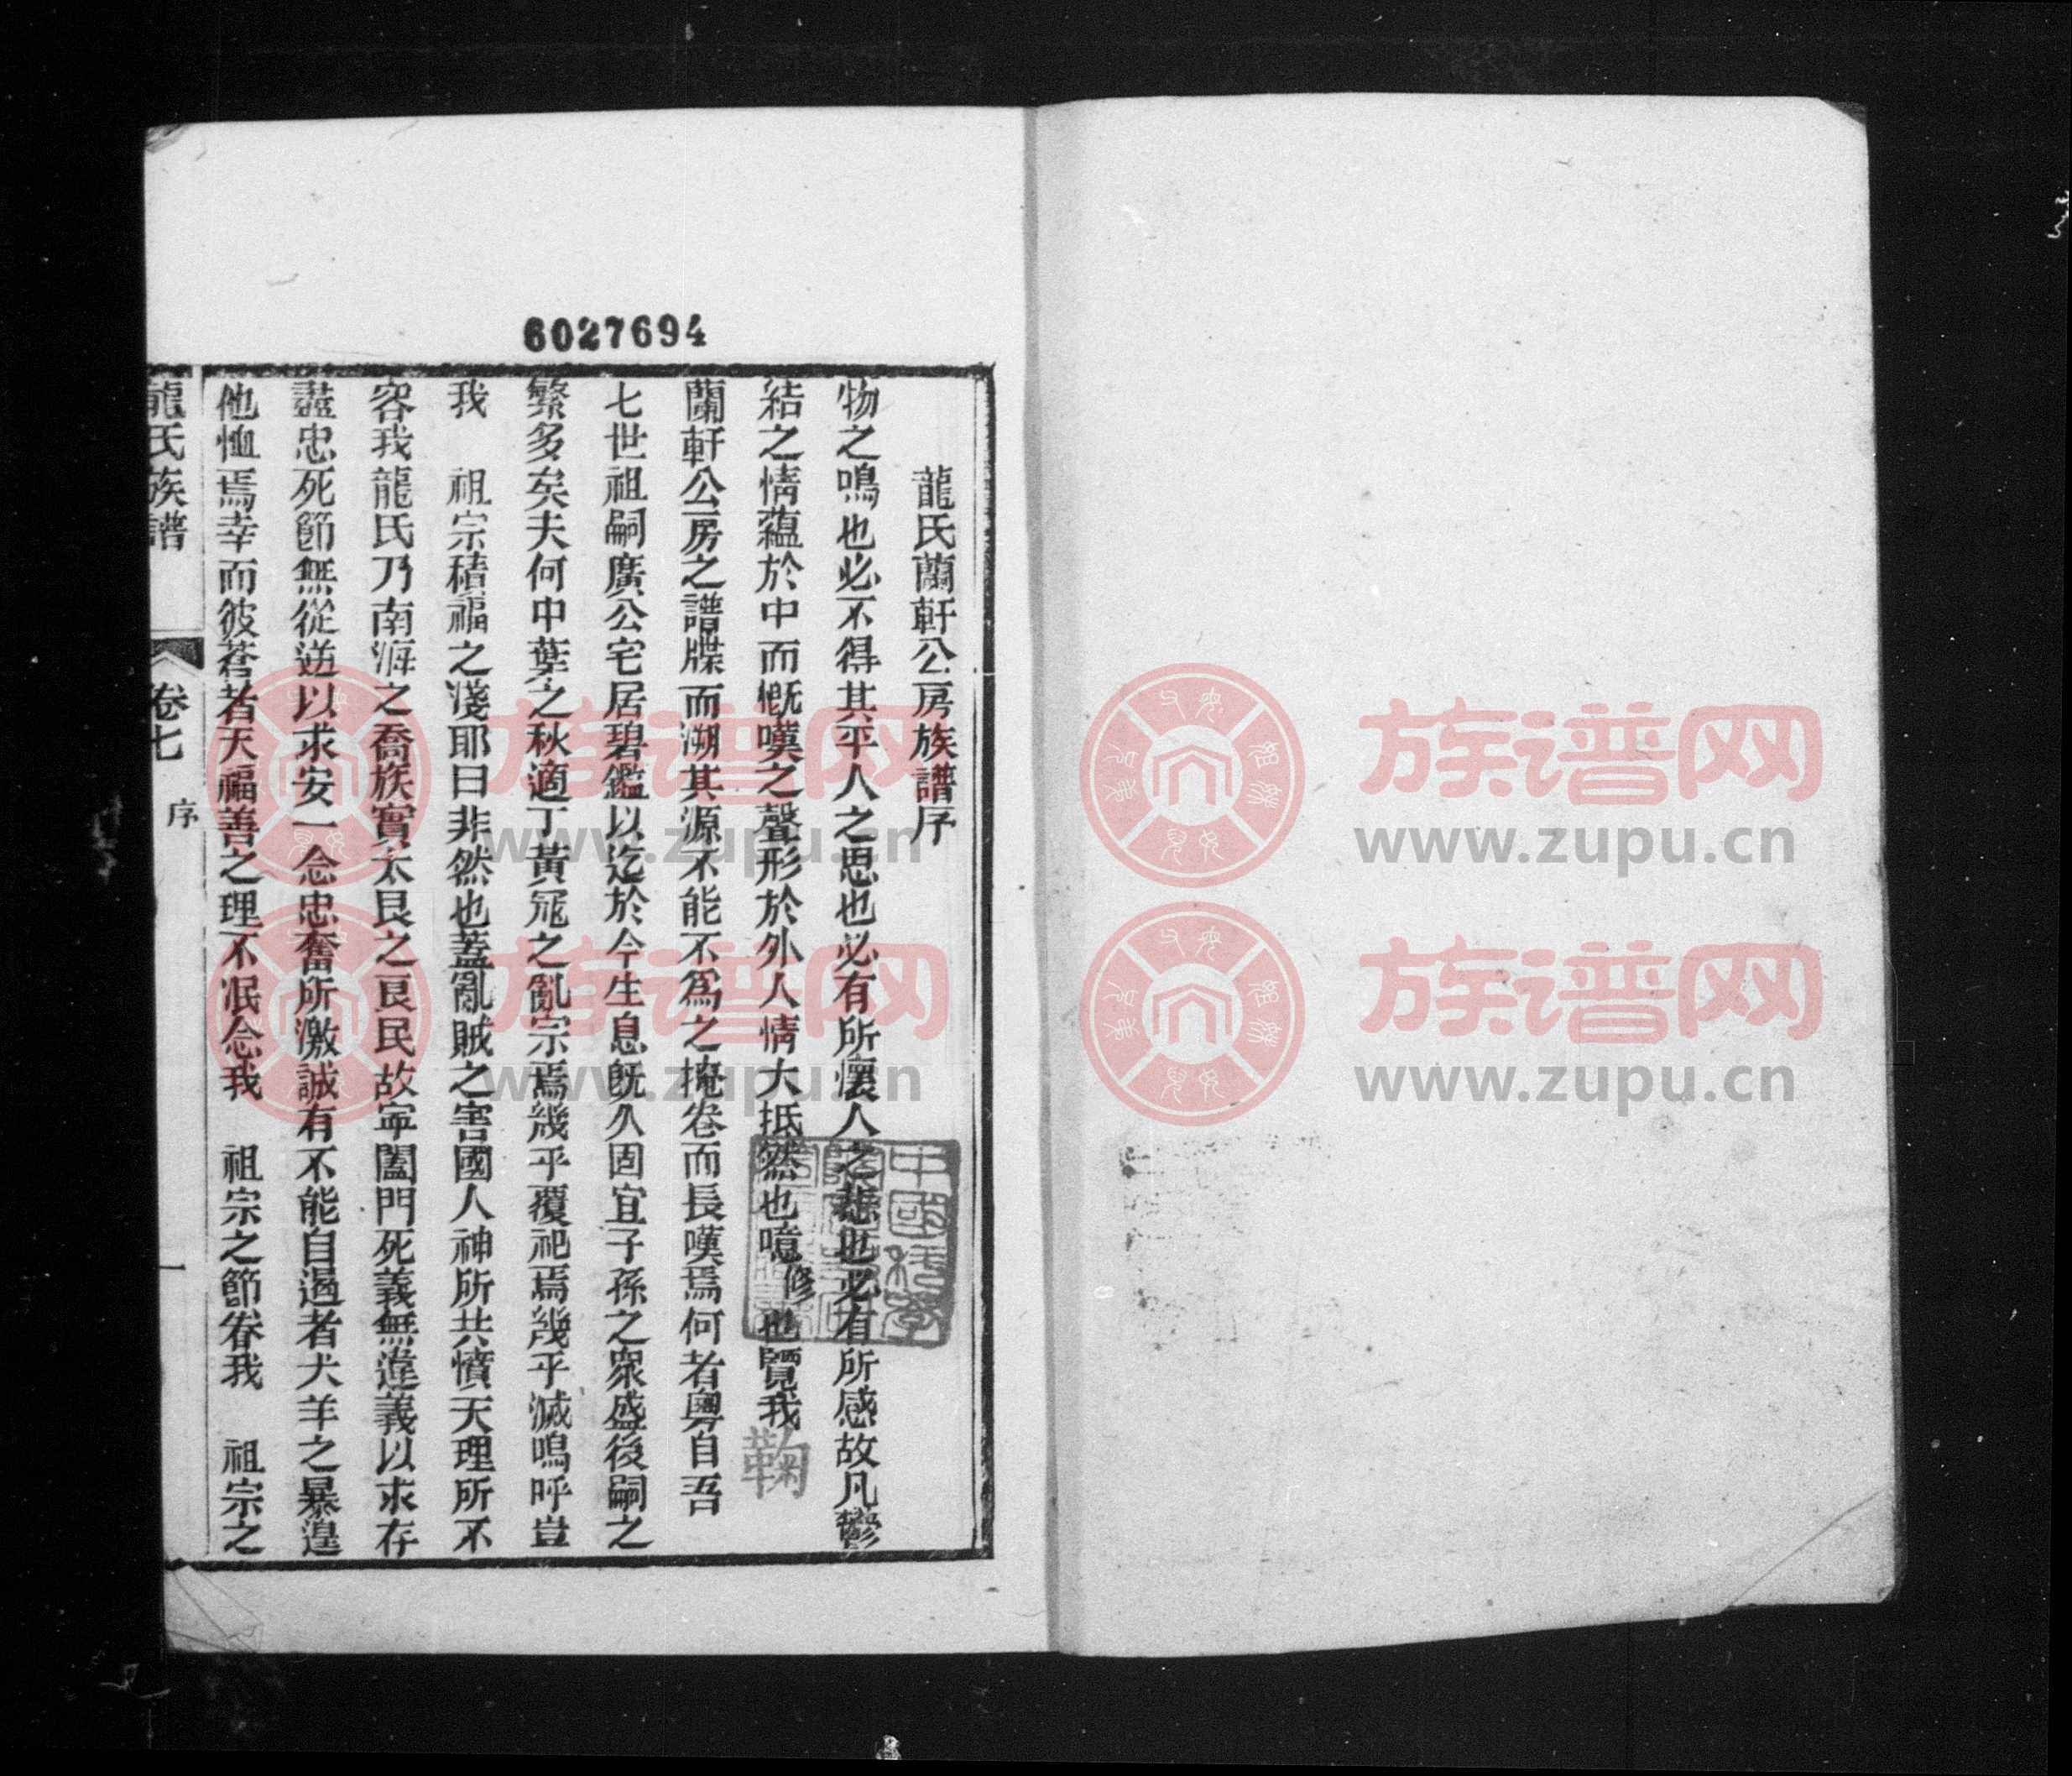 6027694
龍氏蘭軒公房族譜序
物之鳴也必不得其平人之思也必有所懷人之悲也必有所感故凡鬱
結之情蘊於中而慨嘆之聲形於外人情大抵然也噫修也覽我
蘭軒公房之譜牒而溯其源不能不爲之掩卷而長嘆焉何者粵自吾
七世祖嗣廣公宅居碧鑑以迄於今生息旣久固宜子孫之衆盛後嗣之
繁多矣夫何中葉之秋適丁黃冦之亂宗焉幾乎覆祀焉幾乎滅嗚呼豈
我　祖宗積福之淺耶曰非然也蓋亂賊之害國人神所共憤天理所不
容我龍氏乃南海之喬族實太艮之良民故寜闔門死義無違義以求存
盡忠死節無從逆以求安一念忠奮所激誠有不能自遏者犬羊之暴遑
他恤焉幸而彼蒼者天福善之理不泯念我　祖宗之節眷我　祖宗之
龍氏族譜　卷七　序　一
鞠
族谱网
www.zupu.cn
族谱网
www.zupu.cn
族谱网
www.zupu.cn
族谱网
www.zupu.cn